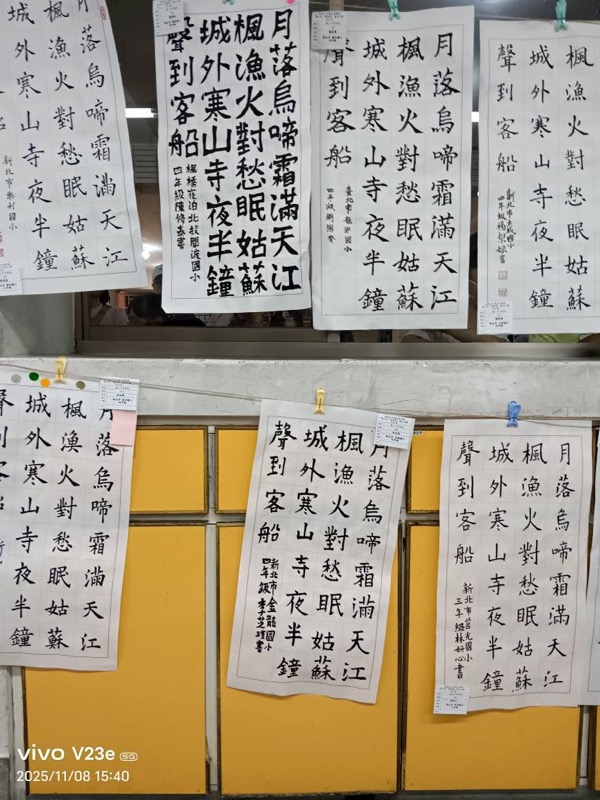 月落烏啼霜滿天江
楓漁火對愁眠姑蘇
城外寒山寺夜半鐘
新北市
國小
月落烏啼霜滿天江
楓漁火對愁眠姑蘇
城外寒山寺夜半鐘
聲到客船
楓橋夜泊北投關渡國小
四年級陳修
書
月落烏啼霜滿天江
楓漁火對愁眠姑蘇
城外寒山寺夜半鐘
聲到客船
國小
四年級劉
楓漁火對愁眠姑蘇
城外寒山寺夜半鐘
聲到客船
新北市
國小
四年級楊
書
月落烏啼霜滿天江
楓漁火對愁眠姑蘇
城外寒山寺夜半鐘
聲到客船
月落烏啼霜滿天江
楓漁火對愁眠姑蘇
城外寒山寺夜半鐘
聲到客船
新北市金龍國小
四年級李芝璞書
月落烏啼霜滿天江
楓漁火對愁眠姑蘇
城外寒山寺夜半鐘
聲到客船
新北市莒光國小
三年級林妤心書
vivo V23e 5G
2025/11/08 15:40